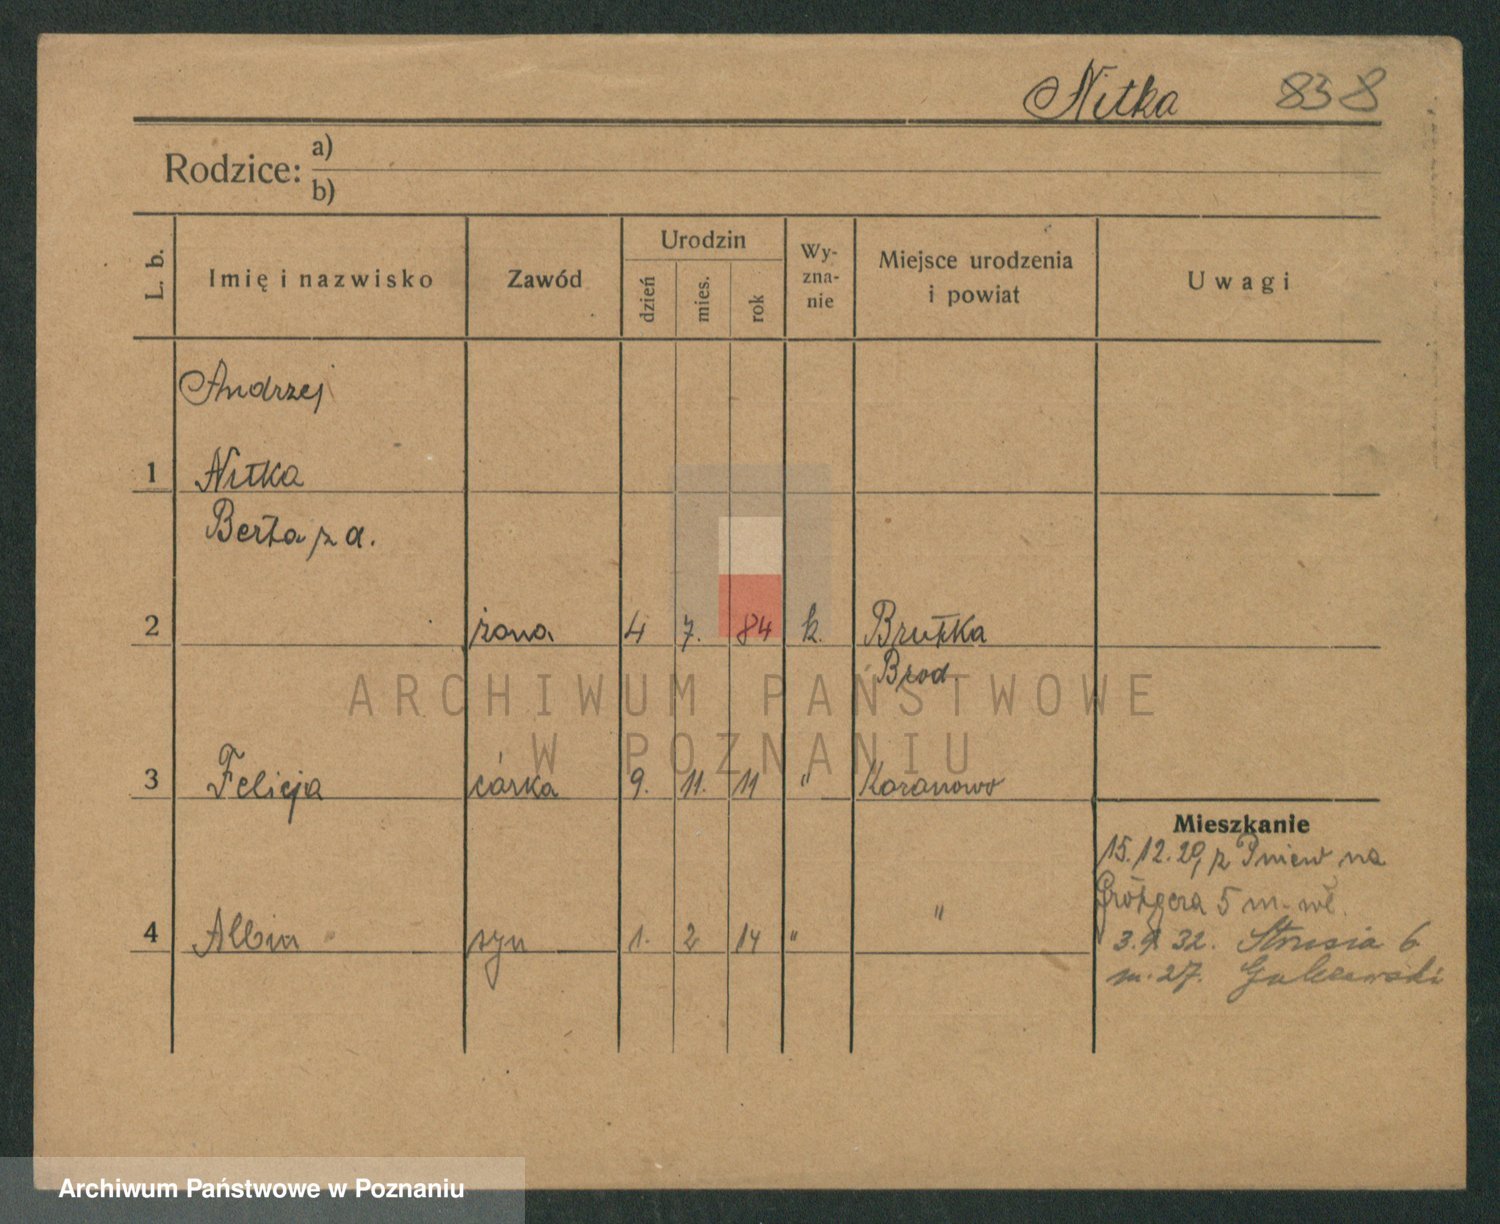 Nitka 838
Rodzice: a)
b)
L. b.
Imię i nazwisko
Zawód
Urodzin
dzień
mies.
rok
Wy-
zna-
nie
Miejsce urodzenia
i powiat
Uwagi
Andrzej
1 Nitka
Berta z d.
2 żona 4 7. 84 k. Brutka
Brod.
ARCHIWUM PAŃSTWOWE
W POZNANIU
3 Felicja córka 9. 11. 11 " Koronowo
Mieszkanie
15.12.20, z Pniew na
5 m. wł.
4 Albin syn 1. 2 14 " "
3.9.32. Strusia 6
m. 27.
Archiwum Państwowe w Poznaniu